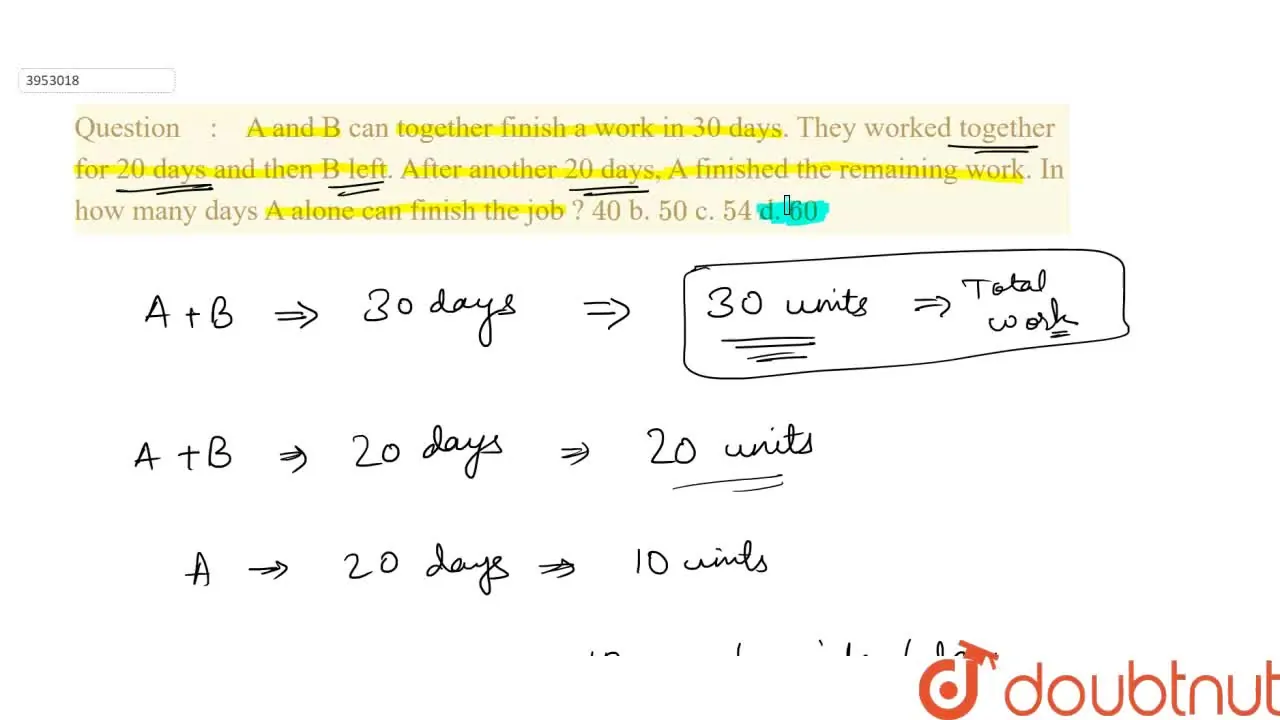 3953018
Question : A and B can together finish a work in 30 days. They worked together
for 20 days and then B left. After another 20 days, A finished the remaining work. In
how many days A alone can finish the job ? 40 b. 50 c. 54 d. 60
A + B ⇒ 30 days ⇒ 30 units ⇒ Total work
A + B ⇒ 20 days ⇒ 20 units
A → 20 days ⇒ 10 units
doubtnut